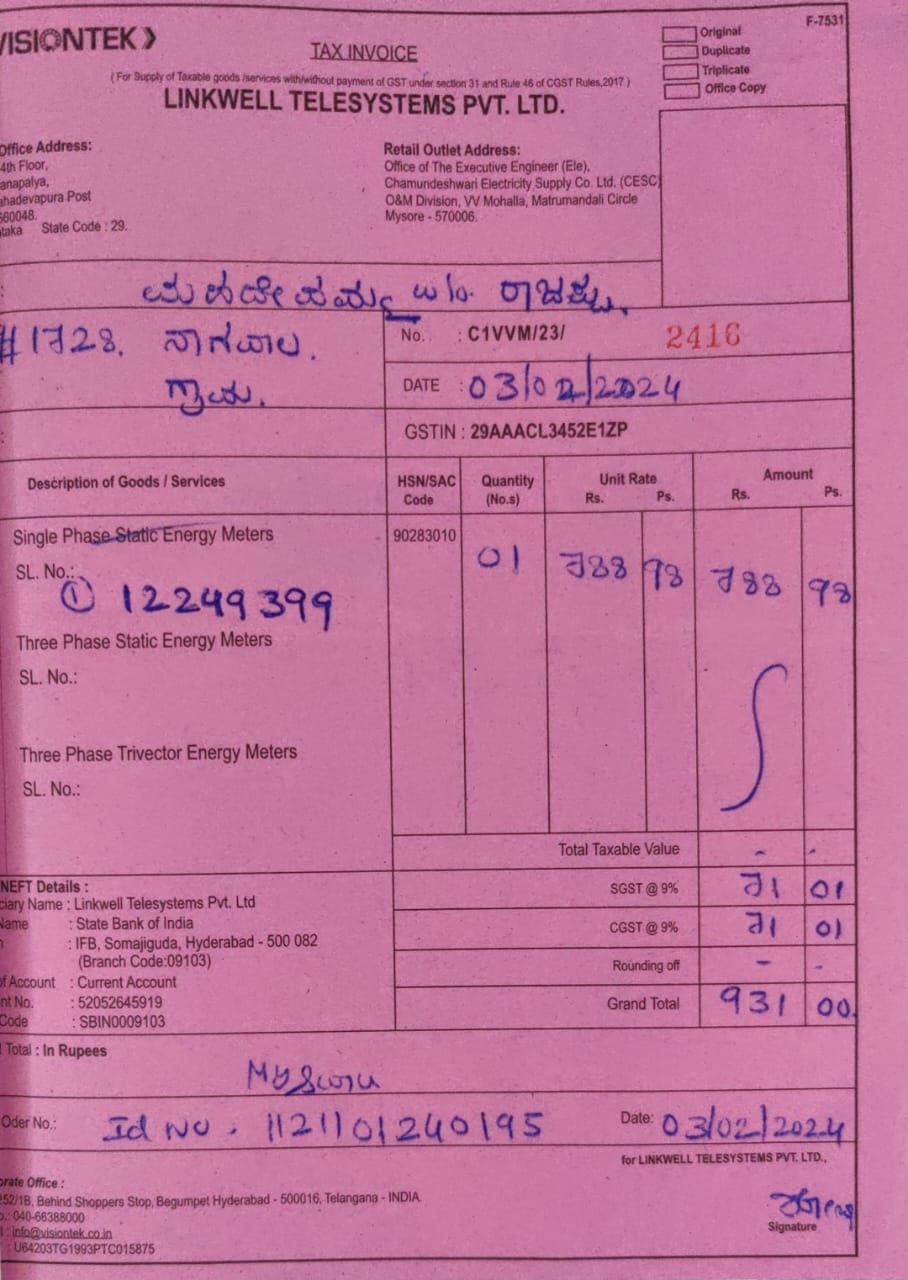 VISIONTEK
F-7531
TAX INVOICE
Original
Duplicate
Triplicate
Office Copy
( For Supply of Taxable goods /services with/without payment of GST under section 31 and Rule 46 of CGST Rules,2017 )
LINKWELL TELESYSTEMS PVT. LTD.
Office Address:
4th Floor,
anapalya,
ahadevapura Post
560048.
ataka State Code : 29.
Retail Outlet Address:
Office of The Executive Engineer (Ele),
Chamundeshwari Electricity Supply Co. Ltd. (CESC)
O&M Division, VV Mohalla, Matrumandali Circle
Mysore - 570006.
w/o.
#1728. ನಾಗವಾಲ.
ಗ್ರಾಮ.
No. : C1VVM/23/ 2416
DATE : 03/02/2024
GSTIN : 29AAACL3452E1ZP
Description of Goods / Services HSN/SAC Code Quantity (No.s) Unit Rate Rs. Ps. Amount Rs. Ps.
Single Phase Static Energy Meters 90283010 01 788 98 788 98
SL. No.:
① 12249399
Three Phase Static Energy Meters
SL. No.:
Three Phase Trivector Energy Meters
SL. No.:
Total Taxable Value - -
SGST @ 9% 71 01
CGST @ 9% 71 01
Rounding off - -
Grand Total 931 00
NEFT Details :
ciary Name : Linkwell Telesystems Pvt. Ltd
Name : State Bank of India
: IFB, Somajiguda, Hyderabad - 500 082
(Branch Code:09103)
of Account : Current Account
nt No. : 52052645919
Code : SBIN0009103
Total : In Rupees
Oder No.: Id No. 1121101240195 Date: 03/02/2024
for LINKWELL TELESYSTEMS PVT. LTD.,
orate Office :
252/1B, Behind Shoppers Stop, Begumpet Hyderabad - 500016, Telangana - INDIA.
.: 040-66388000
: info@visiontek.co.in
: U64203TG1993PTC015875
Signature